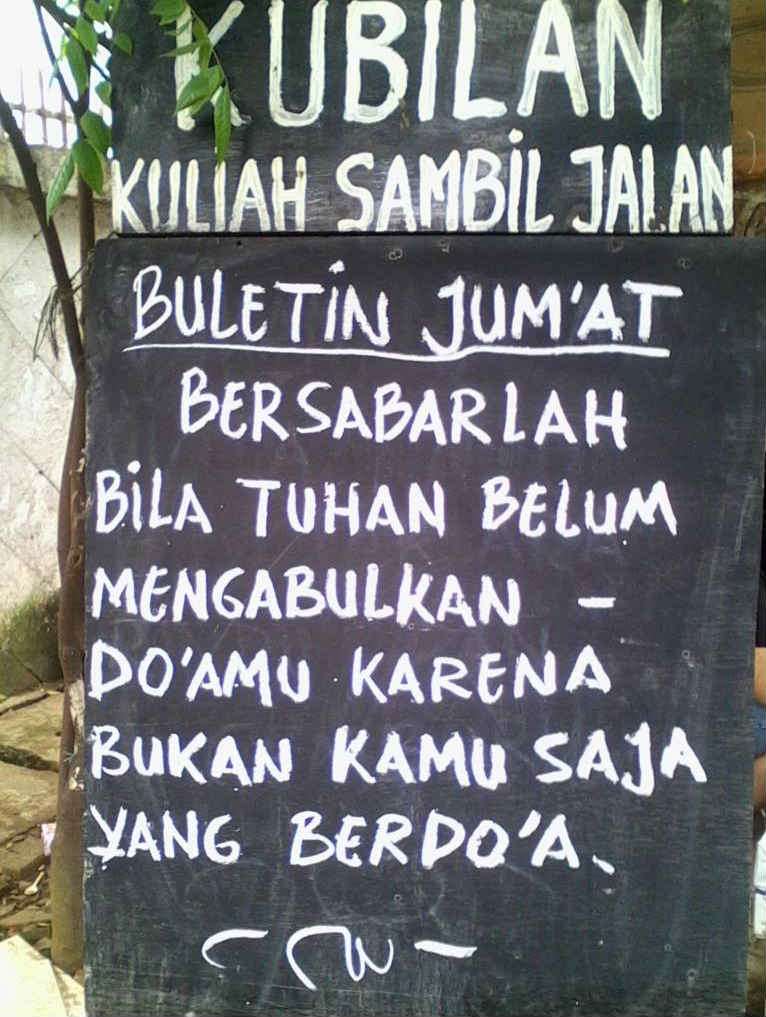 KUBILAN
KULIAH SAMBIL JALAN
BULETIN JUM'AT
BERSABARLAH
BILA TUHAN BELUM
MENGABULKAN -
DO'AMU KARENA
BUKAN KAMU SAJA
YANG BERDO'A.